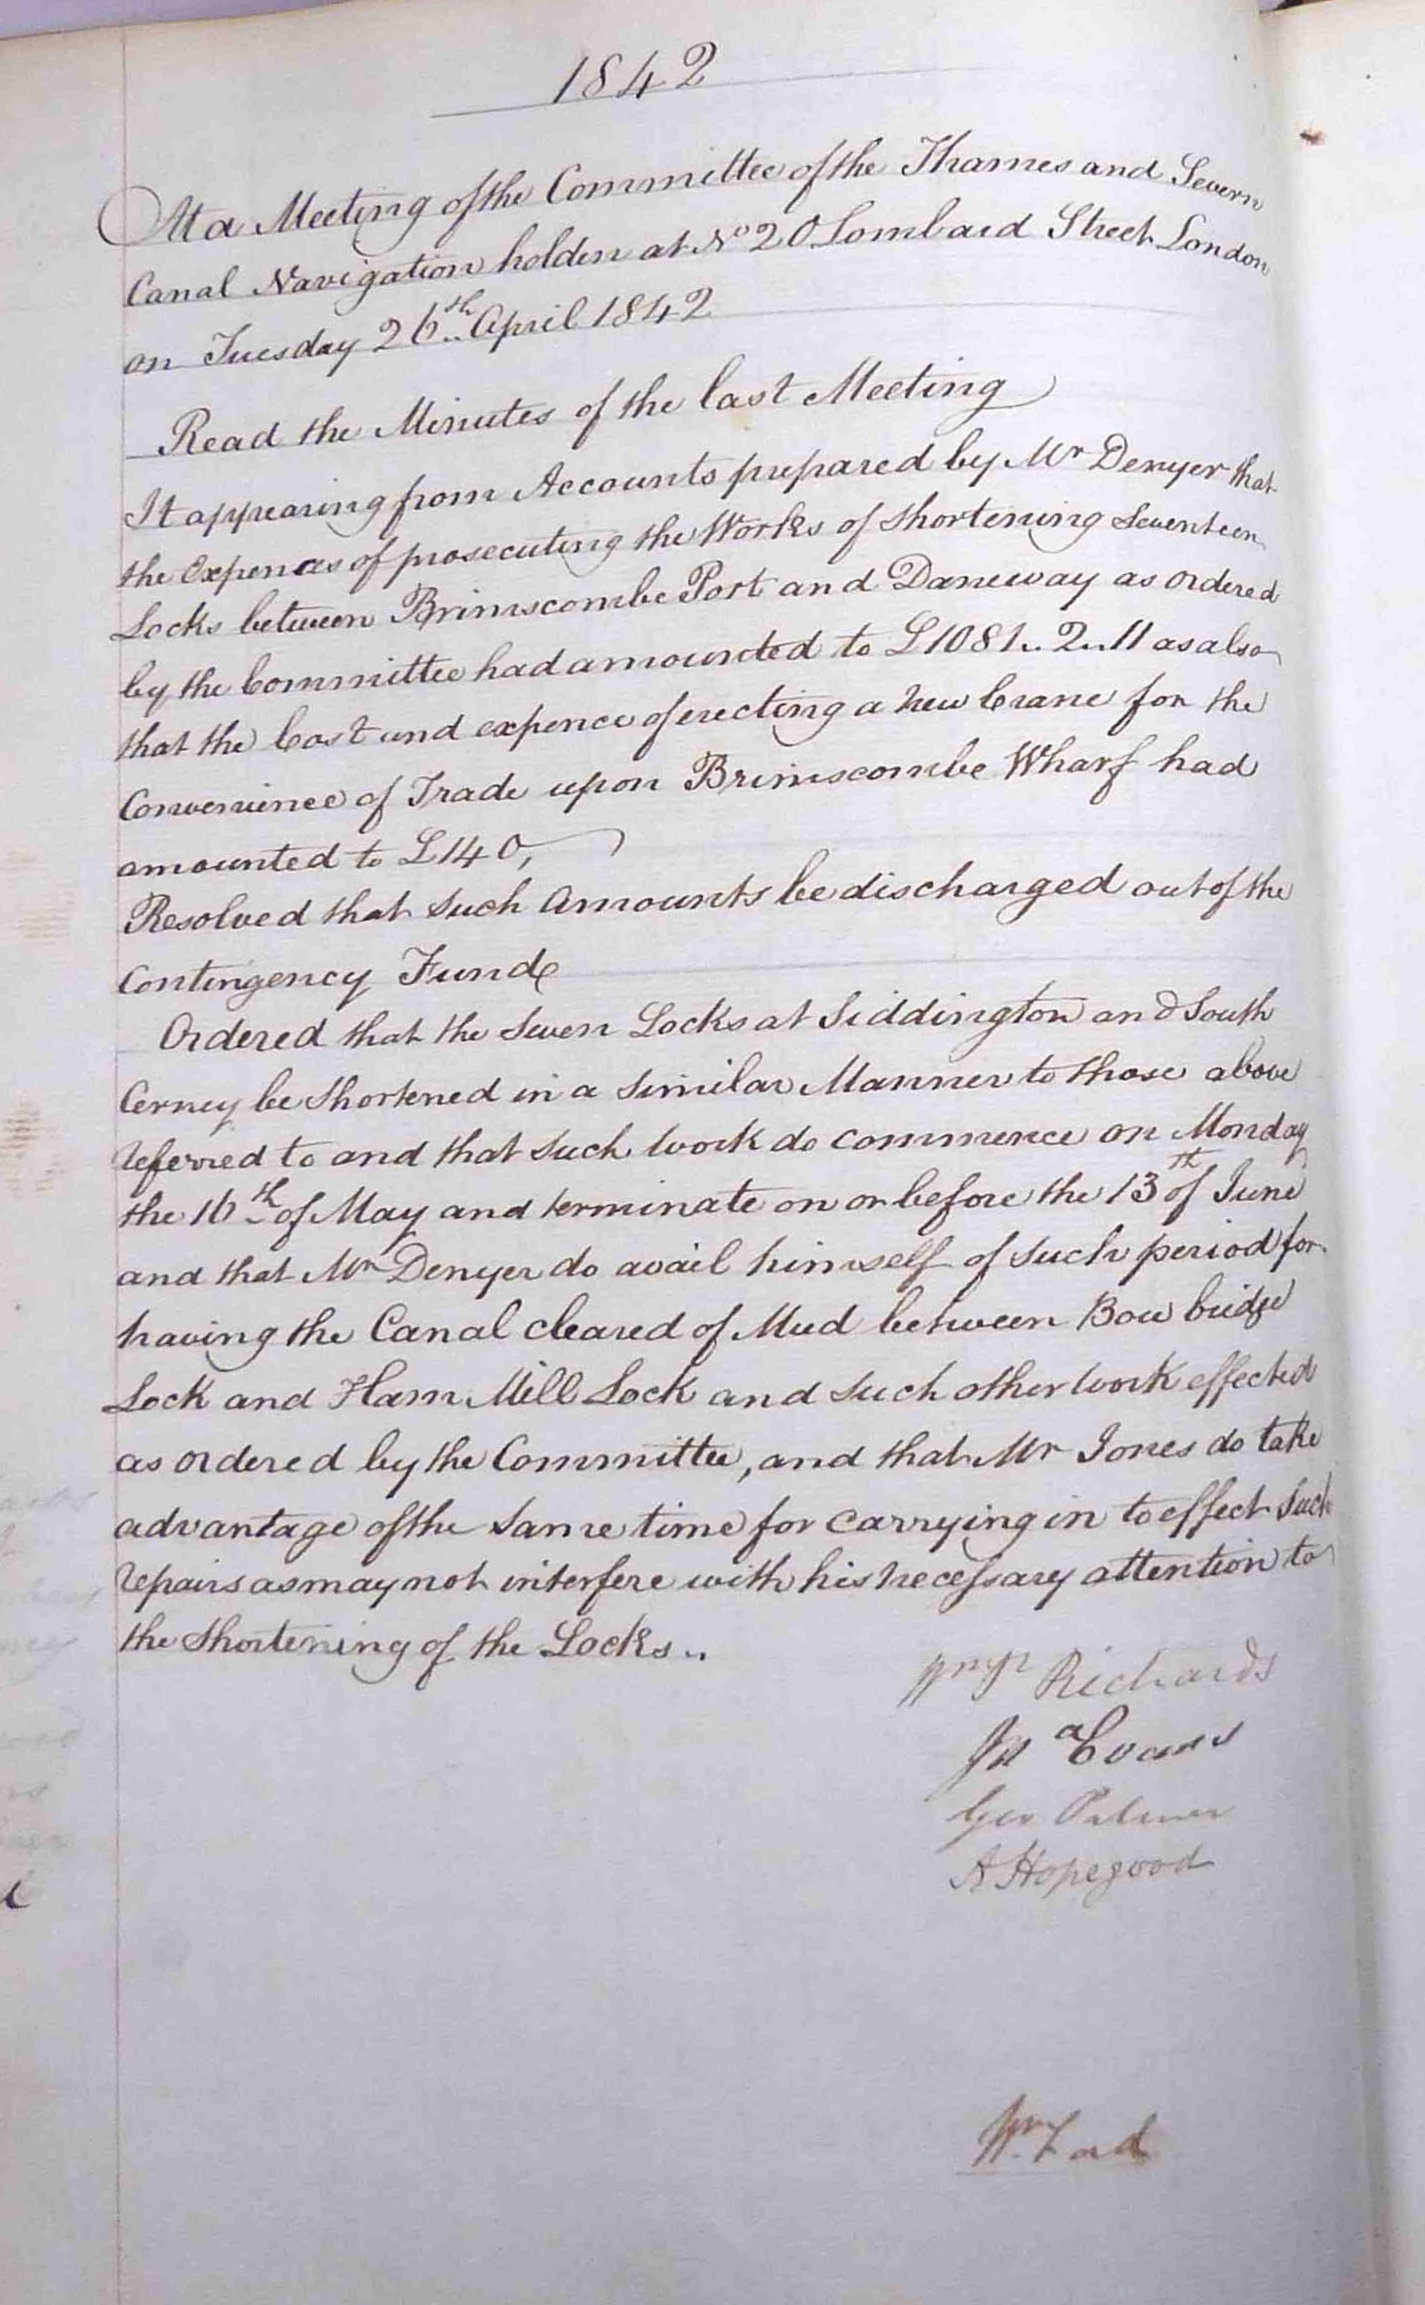 1842
At a Meeting of the Committee of the Thames and Severn
Canal Navigation holden at No 20 Lombard Street London
on Tuesday 26th April 1842
Read the Minutes of the last Meeting
It appearing from Accounts prepared by Mr Denyer that
the Expences of prosecuting the Works of shortening Seventeen
Locks between Brimscombe Port and Daneway as ordered
by the Committee had amounted to £1081..2..11 as also
that the Cost and expence of erecting a new Crane for the
Convenience of Trade upon Brimscombe Wharf had
amounted to £140,
Resolved that such Amounts be discharged out of the
Contingency Fund
Ordered that the Seven Locks at Siddington and South
Cerney be Shortened in a Similar Manner to those above
referred to and that such work do commence on Monday
the 16th of May and terminate on or before the 13th of June
and that Mr Denyer do avail himself of such period for
having the Canal cleared of Mud between Bow bridge
Lock and Ham Mill Lock and such other work effected
as ordered by the Committee, and that Mr Jones do take
advantage of the same time for carrying in to effect such
repairs as may not interfere with his necessary attention to
the Shortening of the Locks..
Richards
Jna Evans
Geo Palmer
A Hopegood
Wm